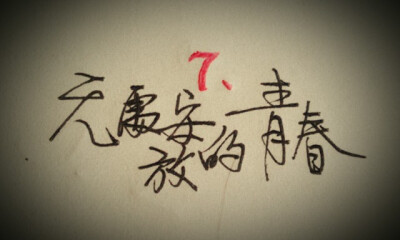 7、
无处安放的青春